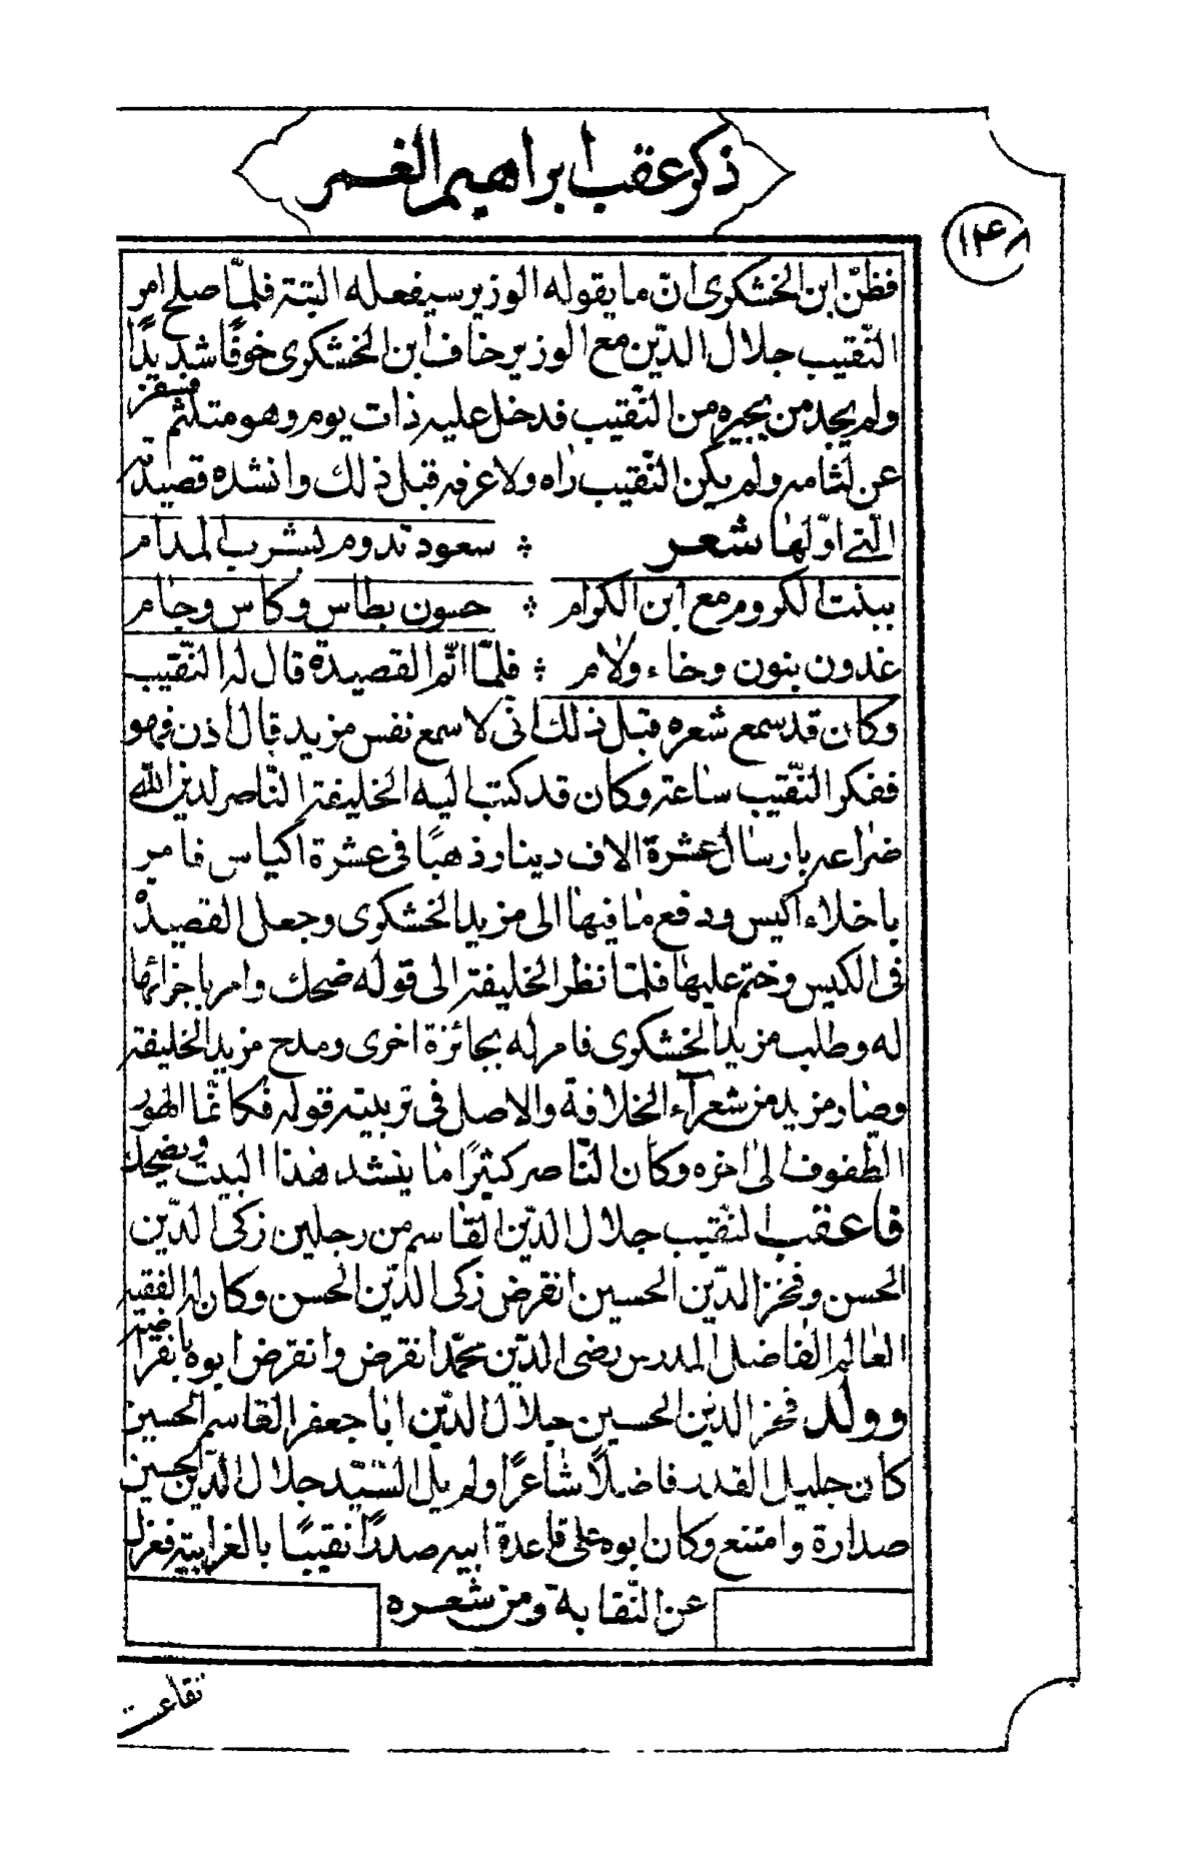 ذكر عقب ابراهيم الغمر
١٤٨
فظنّ ابن الخشكرى انّ ما يقوله الوزير سيفعله البتة فلمّا صلح امر
النّقيب جلال الدّين مع الوزير خاف ابن الخشكرى خوفًا شديدًا
ولم يجد من يجيره من النّقيب فدخل عليه ذات يوم وهو متلثم فسفر
عن لثامه ولم يكن النّقيب راه ولا عرفه قبل ذلك وانشده قصيدته
الّتى اوّلها شعر ؞ سعود تدوم بشرب المدام
ببنت الكروم مع ابن الكرام ؞ حسون بطاس وكاس وجام
غدون بنون وخاء ولام ؞ فلمّا اتم القصيدة قال له النّقيب
وكان قد سمع شعره قبل ذلك انى لاسمع نفس مزيد قال اذن فهو
ففكر النّقيب ساعة وكان قد كتب اليه الخليفة النّاصر لدين الله
ضراعه بارسال عشرة الاف دينار ذهبًا فى عشرة اكياس فامر
باخلاء اكيس ودفع ما فيها الى مزيد الخشكرى وجعل القصيدة
فى الكيس وختم عليها فلمّا نظر الخليفة الى قوله ضحك وامر باجزائها
له وطلب مزيد الخشكرى فامر له بجائزة اخرى ومدح مزيد الخليفة
وصار مزيد من شعرآء الخلافة والاصل فى تربيته قوله فكانما الهور
الطّفوف الى اخره وكان النّاصر كثيرًا ما ينشد هذا البيت ويضحك
فاعقب النّقيب جلال الدّين القاسم من رجلين زكى الدّين
الحسن وفخر الدّين الحسين انقرض زكى الدّين الحسن وكان له الفقيه
العالم الفاضل المدرس رضى الدّين محمّد انقرض وانقرض ابوه بانقراضه
وولد فخر الدين الحسين جلال الدّين ابا جعفر القاسم الحسين
كان جليل القدر فاضلًا شاعرًا ولم يل السّيّد جلال الدّين الحسين
صدارة وامتنع وكان ابوه على قاعدة ابيه صدرًا نقيبًا بالفراتية فعزل
عن النّقابة ومن شعره